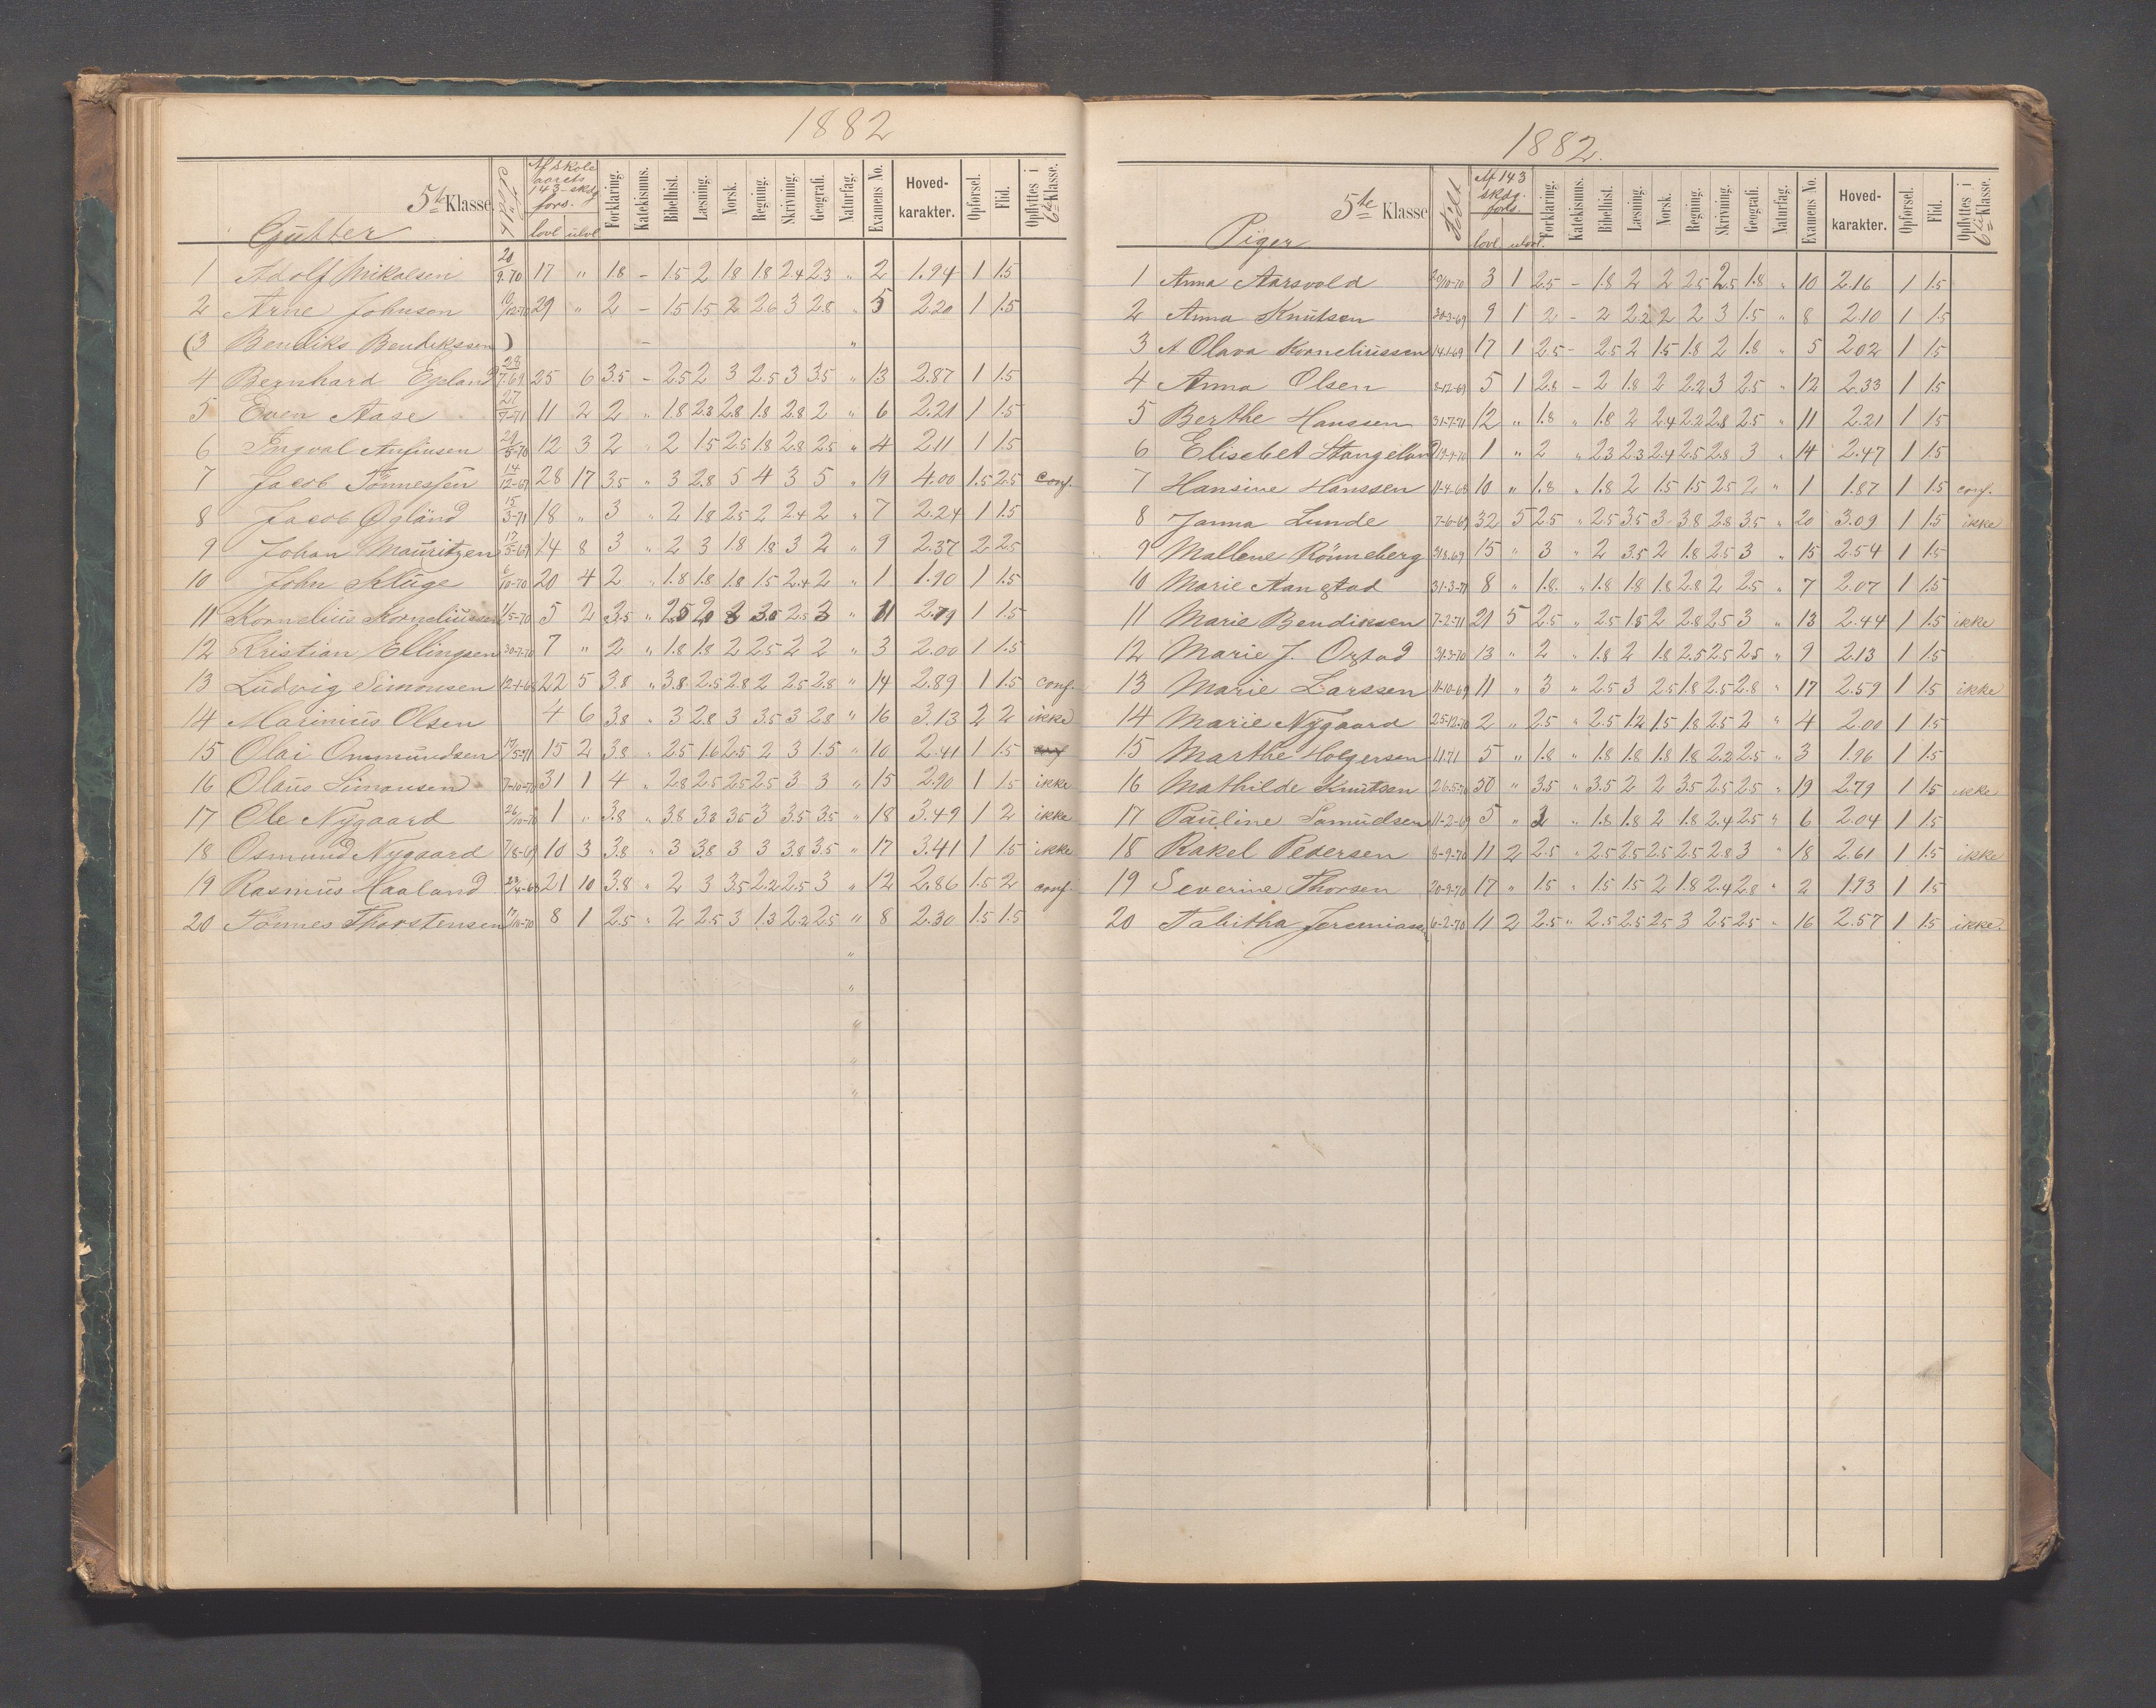 1882
5te Klasse.
Gutter
Født
Af skole aarets 143 skdg. fors.
lovl ulovl
Forklaring. Katekismus. Bibelhist. Læsning. Norsk. Regning. Skrivning. Geografi. Naturfag. Examens No. Hoved-karakter. Opførsel. Flid. Opflyttes i 6te Klasse.
1 Adolf Mikalsen 20/9.70 17 " 1.8 – 1.5 2 1.8 1.8 2.4 2.3 " 2 1.94 1 1.5
2 Arne Johnson 29 " 2 – 1.5 1.5 2 2.6 3 2.8 " 5 2.20 1 1.5
(3 Bendiks Bendikssen) – "
4 Bernhard Egeland 28/7.69 25 6 3.5 – 2.5 2 3 2.5 3 3.5 " 13 2.87 1 1.5
5 Even Aase 27/7-71 11 2 2 " 1.8 2.3 2.8 1.8 2.8 2 " 6 2.21 1 1.5
6 Ingval Anfinsen 29/5-70 12 3 2 " 2 1.5 2.5 1.8 2.8 2.5 " 4 2.11 1 1.5
7 Jacob Tönnessen 14/12-67 28 17 3.5 " 3 2.8 5 4 3 5 " 19 4.00 1.5 2.5 conf.
8 Jacob Øgländ 15/3-71 18 " 3 " 2 1.8 2.5 2 2.4 2 " 7 2.24 1 1.5
9 Johan Mauritzen 17/5-69 14 8 3 " 2 3 1.8 1.8 3 2 " 9 2.37 2 2.5
10 John Kluge 6/10-70 20 4 2 " 1.8 1.8 1.8 1.5 2.4 2 " 1 1.90 1 1.5
11 Kornelius Korneliussen 1/5-70 5 2 3.5 " 2.5 2 3 3.5 2.5 3 " 11 2.79 1 1.5
12 Kristian Ellingsen 30-7-70 7 " 2 " 1.8 1.8 2 2.5 2 2 " 3 2.00 1 1.5
13 Ludvig Simonsen 12-1-68 22 5 3.8 " 3.8 2.5 2.8 2 2.5 2.8 " 14 2.89 1 1.5 conf.
14 Marinius Olsen 4 6 3.8 " 3 2.8 3 3.5 3 2.8 " 16 3.13 2 2 ikke
15 Olai Ommundsen 17/5-71 15 2 3.8 " 2.5 1.6 2.5 2 3 1.5 " 10 2.41 1 1.5
16 Olaus Simonsen 7-10-70 31 1 4 " 2.8 2.5 2.5 2.5 3 3 " 15 2.90 1 1.5 ikke
17 Ole Nygaard 26/10-70 1 " 3.8 " 3.8 3.8 3.5 3 3.5 3.5 " 18 3.49 1 2 ikke
18 Osmund Nygaard 7/8-69 10 3 3.8 " 3 3.8 3 3 3.8 3.5 " 17 3.41 1 1.5 ikke
19 Rasmus Haaland 23/4-68 21 10 3.8 " 2 3 3.5 2.2 2.5 3 " 12 2.86 1.5 2 conf.
20 Tönnes Thorstensen 17/10-70 8 1 2.5 " 2 2.5 3 1.3 2.2 2.5 " 8 2.30 1.5 1.5
"
"
"
"
"
1882.
5te Klasse
Piger
Født
Af 143 skdg. fors.
lovl. ulovl.
Forklaring. Katekismus. Bibelhist. Læsning. Norsk. Regning. Skrivning. Geografi. Naturfag. Examens No. Hoved-karakter. Opførsel. Flid. Opflyttes i 6te Klasse.
1 Anna Aarsvold 3 1 2.5 – 1.8 2 2 2.5 2.5 1.8 " 10 2.16 1 1.5
2 Anna Knutsen 30-3-69 9 1 2 – 2 2.2 2 2 3 1.5 " 8 2.10 1 1.5
3 A Olava Korneliussen 14-1-69 17 1 2.5 – 2.5 2 1.5 1.8 2 1.8 " 5 2.02 1 1.5
4 Anna Olsen 8-12-69 5 1 2.8 – 2 1.8 2 2.2 3 2.5 " 12 2.33 1 1.5
5 Berthe Hanssen 31-7-71 12 " 1.8 " 1.8 2 2.4 2.2 2.8 2.5 " 11 2.21 1 1.5
6 Elisebet Stangeland 1 " 2 " 2.3 2.3 2.4 2.5 2.8 3 " 14 2.47 1 1.5
7 Hansine Hanssen 11-4-68 10 " 1.8 " 1.8 2 1.5 1.5 2.5 2 " 1 1.87 1 1.5 conf.
8 Janna Lunde 7-6-69 32 5 2.5 " 2.5 3.5 3 3.8 2.8 3.5 " 20 3.09 1 1.5 ikke
9 Mallene Rönneberg 31.8.69 15 " 3 " 2 3.5 2 1.8 2.5 3 " 15 2.54 1 1.5
10 Marie Aanestad 31-3-71 8 " 1.8 " 1.8 1.8 1.8 2.8 2 2.5 " 7 2.07 1 1.5
11 Marie Bendiksen 7-2-71 21 5 2.5 " 2.5 1.8 2 2.8 2.5 3 " 13 2.44 1 1.5 ikke
12 Marie J. Orstad 31-3-70 13 " 2 " 1.8 2 1.8 2.5 2.5 2.5 " 9 2.13 1 1.5
13 Marie Larssen 11-10-69 11 " 3 " 2.5 3 2.5 1.8 2.5 2.8 " 17 2.59 1 1.5 ikke
14 Marie Nygaard 25-12-70 2 " 2.5 " 2.5 1.2 1.5 1.8 2.5 2 " 4 2.00 1 1.5
15 Marthe Holgersen 5 " 1.8 " 1.8 1.8 1.8 1.8 2.2 2.5 " 3 1.96 1 1.5
16 Mathilde Knutsen 26.5-70 50 " 3.5 " 3.5 2 2 3.5 2.5 2.5 " 19 2.79 1 1.5 ikke
17 Pauline Samudsen 11-2-69 5 " 2 " 1.8 1.8 2 1.8 2.4 2.5 " 6 2.04 1 1.5
18 Rakel Pedersen 8-9-70 11 2 2.5 " 2.5 2.5 2.5 2.5 2.8 3 " 18 2.61 1 1.5 ikke
19 Severine Thorsen 20-9-70 17 " 1.5 " 1.5 1.5 2 1.8 2.4 2.8 " 2 1.93 1 1.5
20 Tabitha Jeremiassen 6-2-70 11 2 2.5 " 2.5 2.5 2.5 3 2.5 2.5 " 16 2.57 1 1.5 ikke.